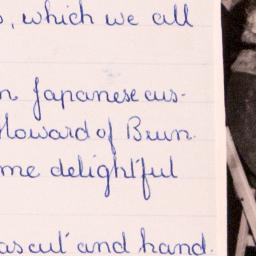 , which we all
n Japanese cus-
Howard of Brun
me delightful
ascut and hand.